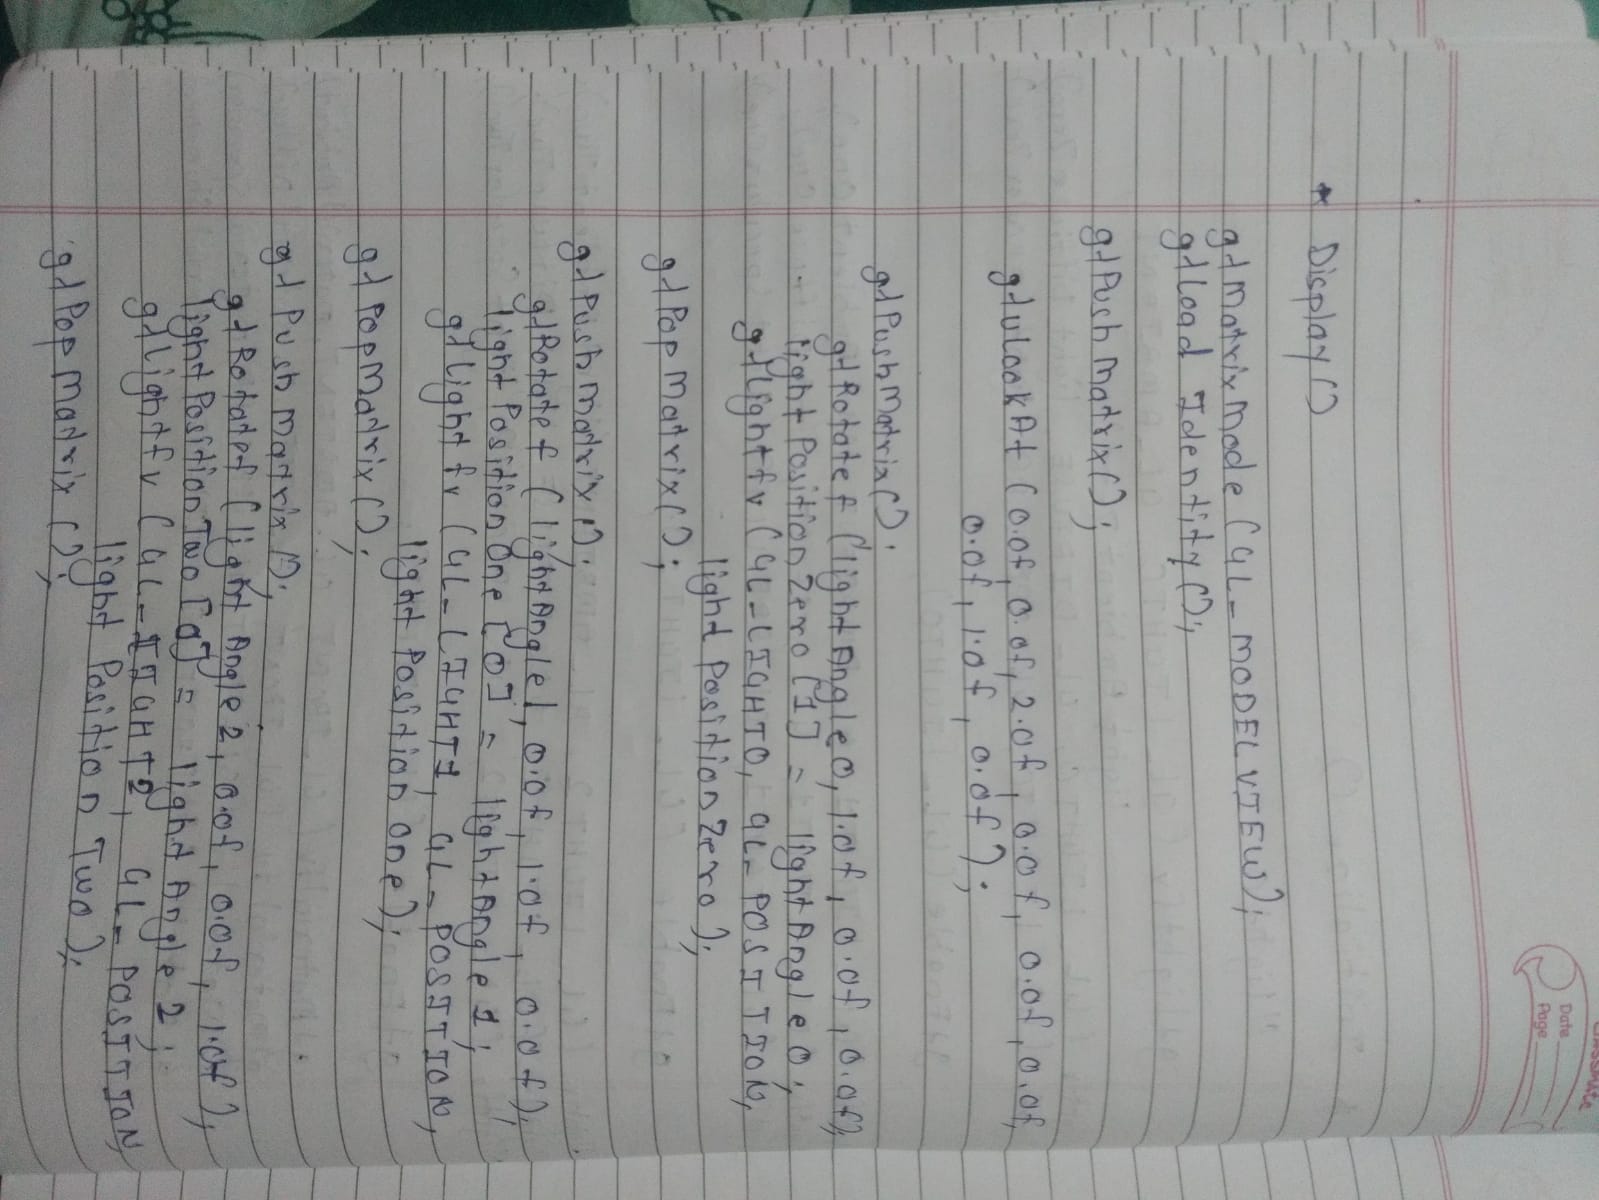 classmate
Date
Page
* Display()
glMatrixMode (GL_MODELVIEW);
glLoad Identity();
glPush Matrix();
gluLookAt (0.0f, 0.0f, 2.0f, 0.0f, 0.0f, 0.0f,
0.0f, 1.0f, 0.0f);
glPushMatrix();
glRotatef (lightAngle0, 1.0f, 0.0f, 0.0f);
lightPositionZero [1] = lightAngle0;
glLightfv (GL_LIGHT0, GL_POSITION,
light PositionZero);
glPopMatrix();
glPushMatrix();
glRotatef (lightAngle1, 0.0f, 1.0f, 0.0f);
light PositionOne [0] = lightAngle1;
glLightfv (GL_LIGHT1, GL_POSITION,
light Position One);
glPopMatrix();
glPushMatrix();
glRotatef (light Angle2, 0.0f, 0.0f, 1.0f);
lightPositionTwo [0] = light Angle2;
glLightfv (GL_LIGHT2, GL_POSITION
light Position Two);
glPopMatrix();